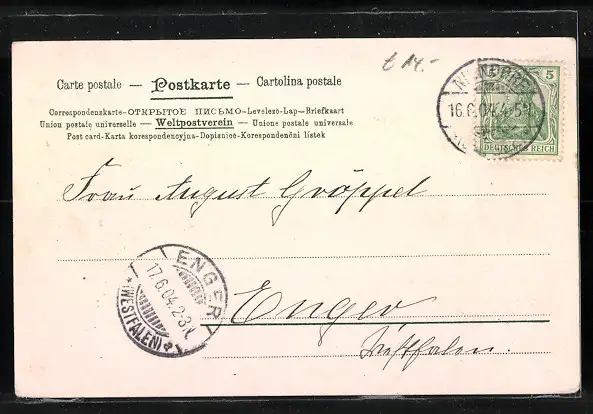 € 14.-
Carte postale — Postkarte — Cartolina postale
Correspondenzkarte–ОТКРЫТОЕ ПИСЬМО–Levelezö-Lap–Briefkaart
Union postale universelle — Weltpostverein — Unione postale universale
Post card-Karta korespondencyjna-Dopisnice-Korespondenční lístek
5
DEUTSCHES REICH
16.6.04.4-5N.
Frau August Gröppel
ENGER
17.6.04.2-3N.
*(WESTFALEN)
Enger
Westfalen.